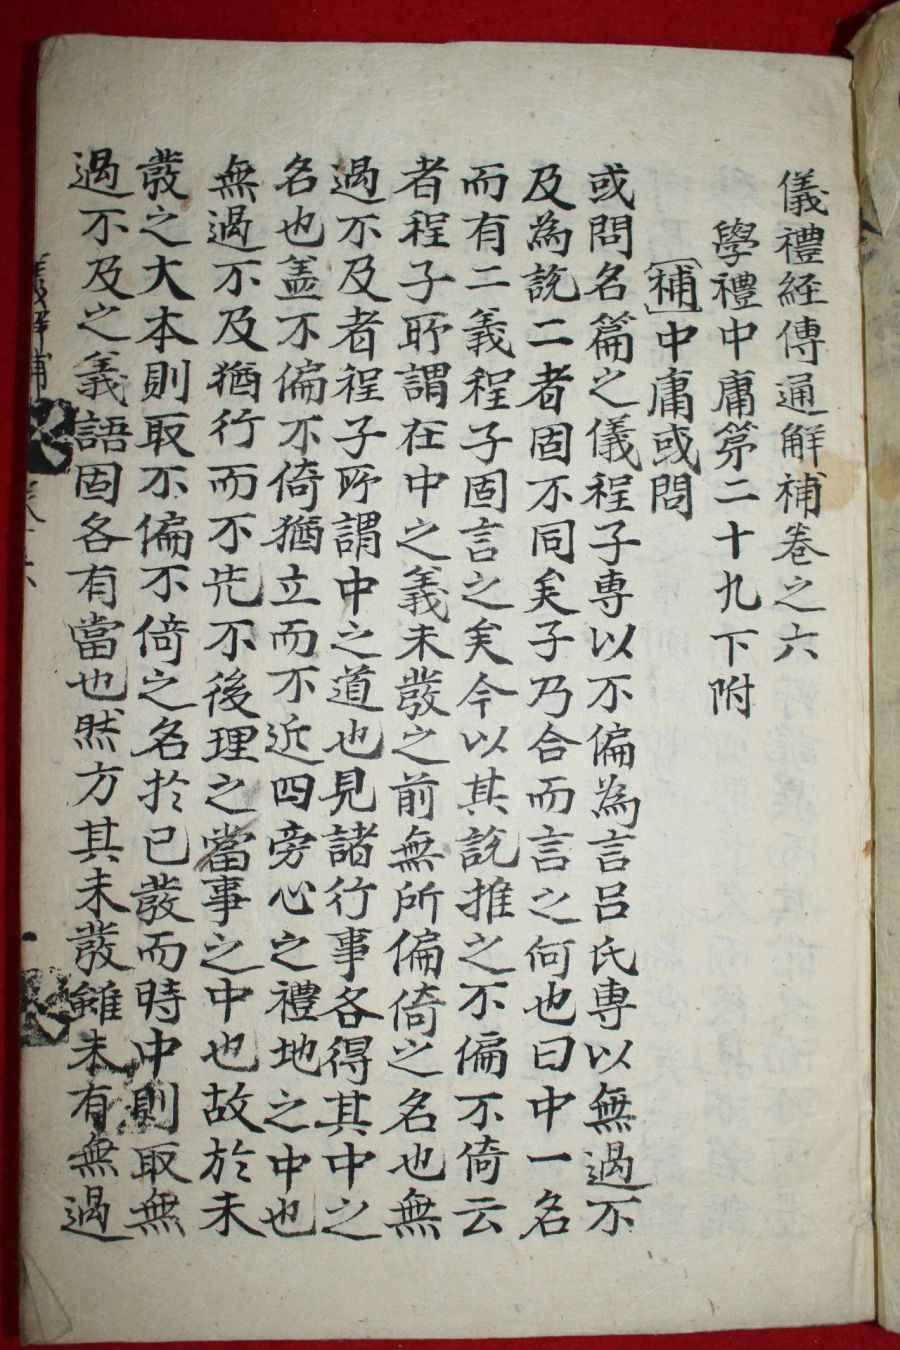 儀禮経傳通解補卷之六
學禮中庸苐二十九下附
補中庸或問
或問名篇之儀程子専以不偏為言吕氏専以無過不
及為説二者固不同矣子乃合而言之何也曰中一名
而有二義程子固言之矣今以其説推之不偏不倚云
者程子所謂在中之義未發之前無所偏倚之名也無
過不及者程子所謂中之道也見諸行事各得其中之
名也盖不偏不倚猶立而不近四旁心之禮地之中也
無過不及猶行而不先不後理之當事之中也故於未
發之大本則取不偏不倚之名於已發而時中則取無
過不及之義語固各有當也然方其未發雖未有無過